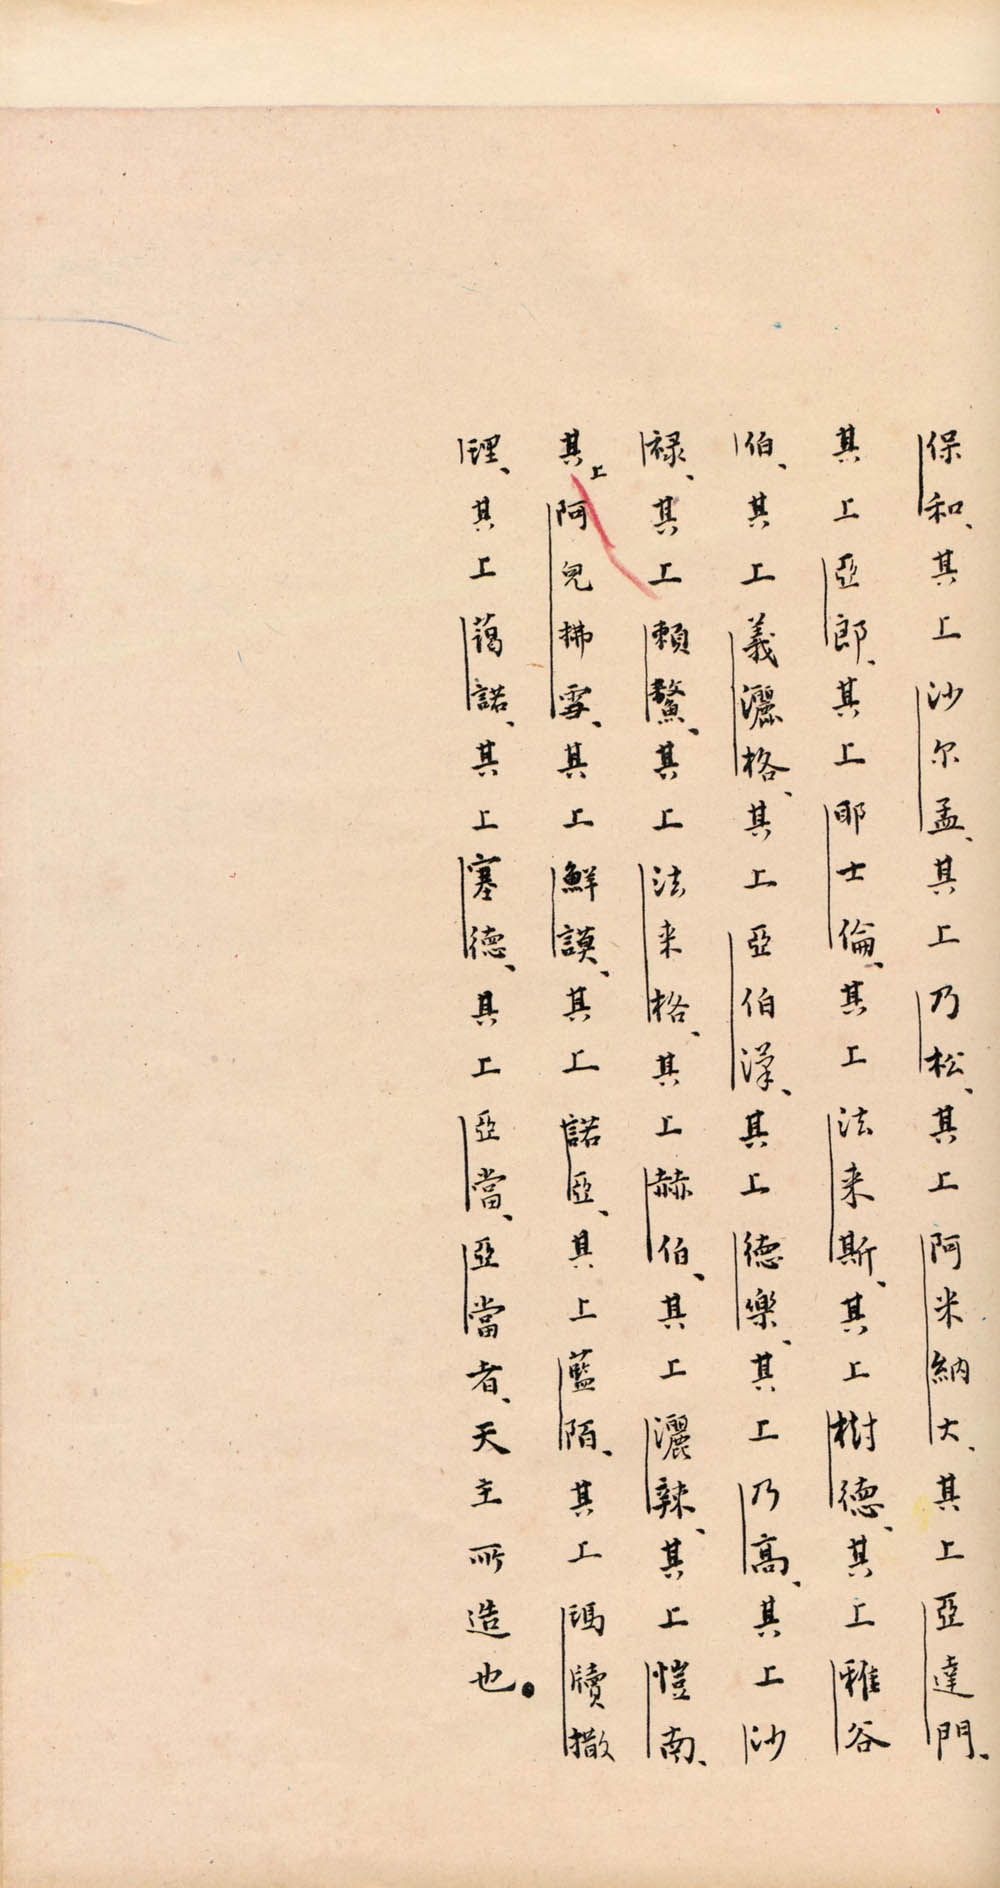 保和、其上沙尔孟、其上乃松、其上阿米納大、其上亞達門、
其上亞郎、其上耶士倫、其上法来斯、其上樹德、其上雅谷
伯、其上義灑格、其上亞伯漢、其上德樂、其上乃高、其上沙
禄、其上賴鰲、其上法来格、其上赫伯、其上灑辣、其上愷南、
其上阿兒拂雪、其上鮮謨、其上諾亞、其上藍陌、其上瑪牘撒
理、其上藹諾、其上塞德、其上亞當、亞當者、天主所造也。